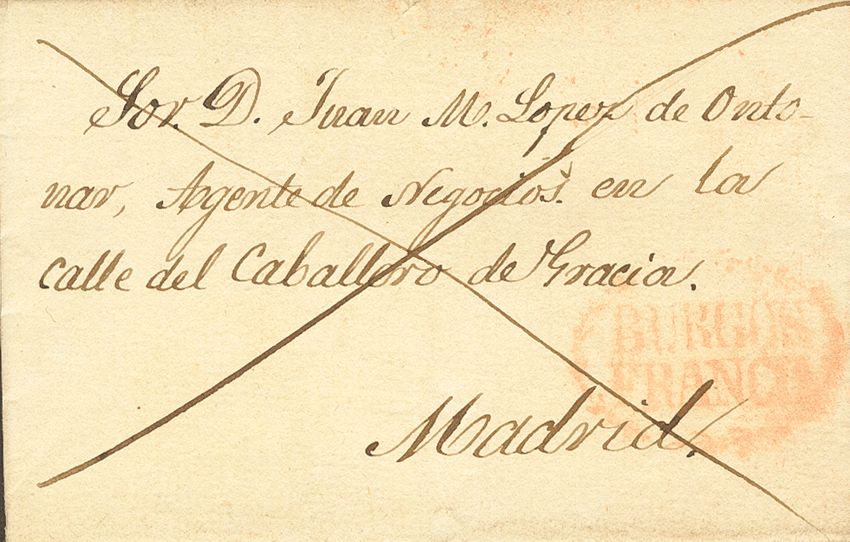 Sor. D. Juan M. Lopez de Onto-
nar, Agente de Negocios. en la
calle del Caballero de Gracia.
BURGOS
FRANCO
Madrid.